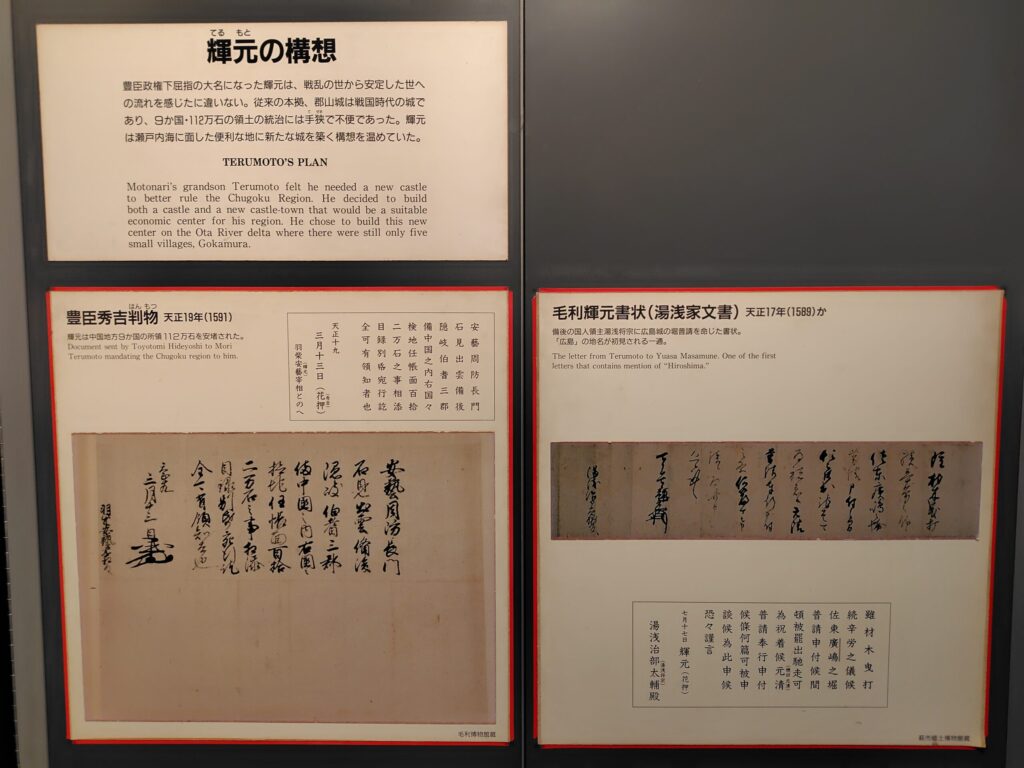 てる もと
輝元の構想
豊臣政権下屈指の大名になった輝元は、戦乱の世から安定した世へ
の流れを感じたに違いない。従来の本拠、郡山城は戦国時代の城で
あり、9か国・112万石の領土の統治には手狭で不便であった。輝元
は瀬戸内海に面した便利な地に新たな城を築く構想を温めていた。
TERUMOTO'S PLAN
Motonari's grandson Terumoto felt he needed a new castle
to better rule the Chugoku Region. He decided to build
both a castle and a new castle-town that would be a suitable
economic center for his region. He chose to build this new
center on the Ota River delta where there were still only five
small villages, Gokamura.
はん もつ
豊臣秀吉判物 天正19年(1591)
輝元は中国地方9か国の所領112万石を安堵された。
Document sent by Toyotomi Hideyoshi to Mori
Terumoto mandating the Chugoku region to him.
安藝周防長門
石見出雲備後
隠岐伯耆三郡
備中国之内右国々
検地任帳面百拾
二万石之事相添
目録別帋宛行訖
全可有領知者也
天正十九
三月十三日(花押)
羽柴安藝宰相とのへ
安藝周防長門
石見出雲備後
隠岐伯耆三郡
備中国之内右国々
検地任帳面百拾
二万石之事相添
目録別帋宛行訖
全可有領知者也
天正十九
三月十三日
毛利博物館蔵
毛利輝元書状(湯浅家文書) 天正17年(1589)か
備後の国人領主湯浅将宗に広島城の堀普請を命じた書状。
「広島」の地名が初見される一通。
The letter from Terumoto to Yuasa Masamune. One of the first
letters that contains mention of "Hiroshima."
雖材木曳打
続辛労之儀候
佐東廣嶋之堀
普請申付候間
頓被罷出馳走可
為祝着候元清
普請奉行申付
候條何篇可被申
談候為此申候
恐々謹言
七月十七日 輝元(花押)
湯浅治部太輔殿
萩市郷土博物館蔵